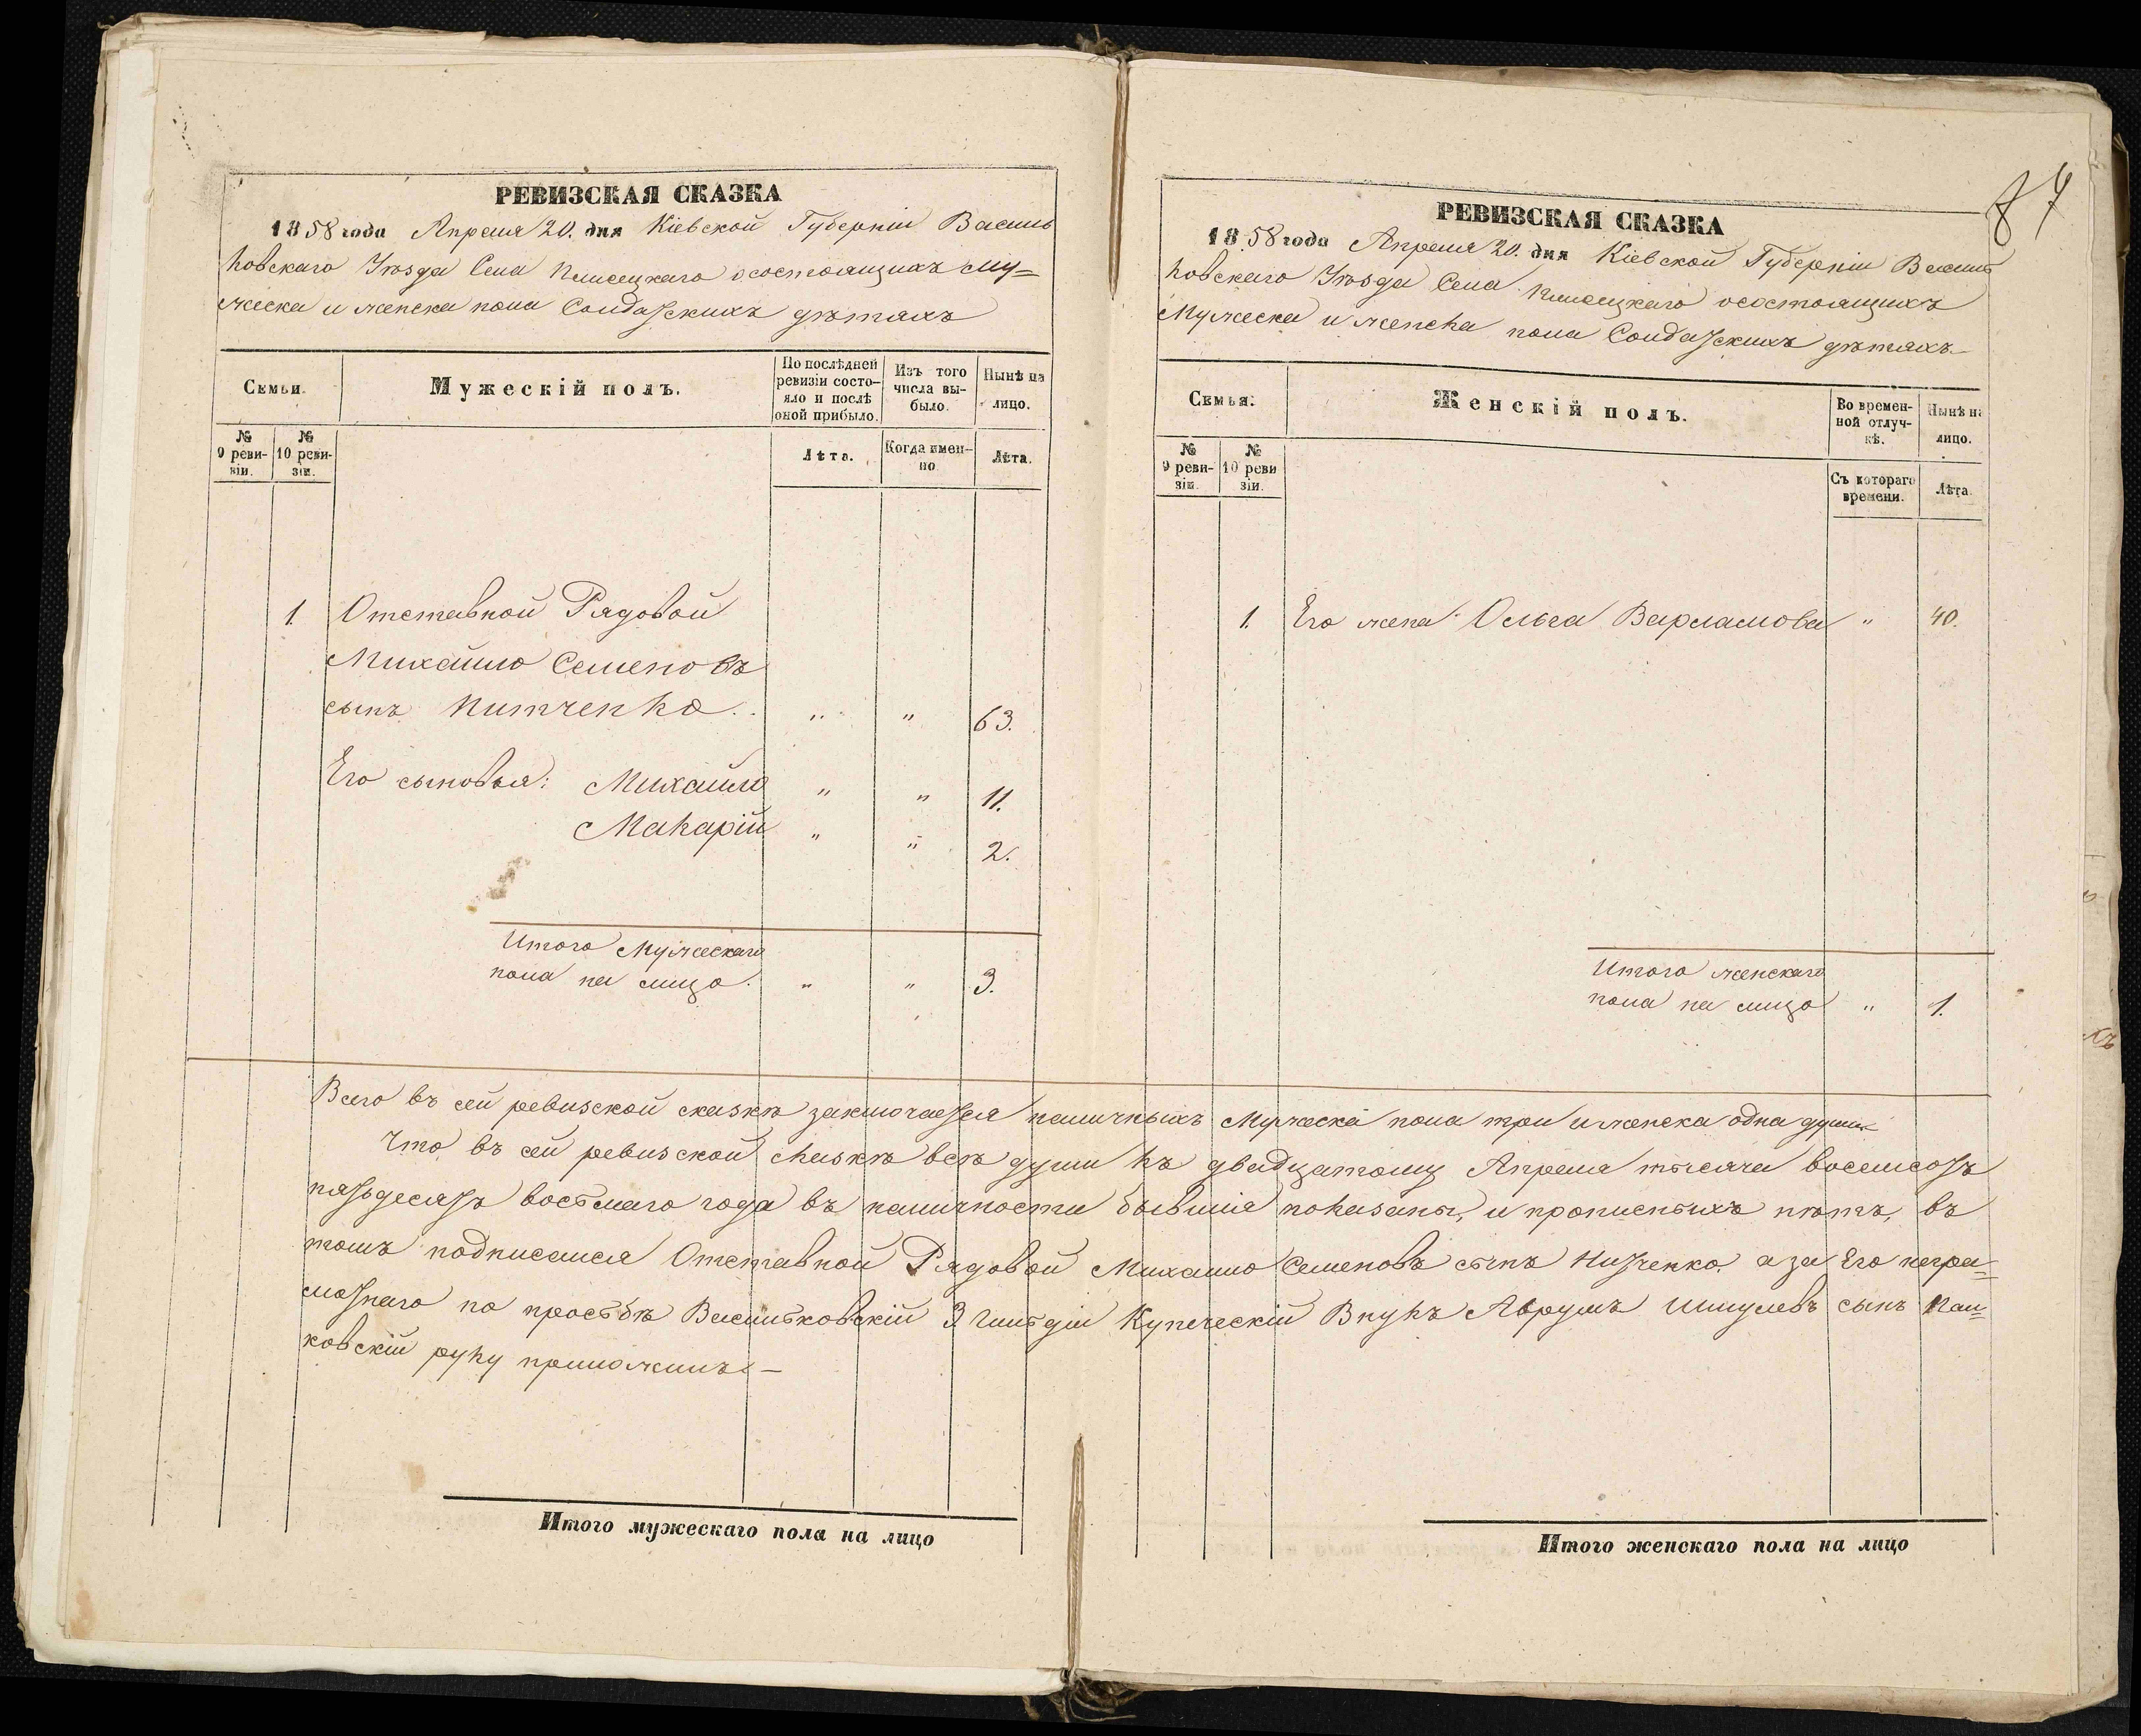 РЕВИЗСКАЯ СКАЗКА
1858 года Апреля 20. дня Кіевской Губерніи Василь
ковскаго Уѣзда Села Плисецкаго о состоящихъ му=
жеска и женска пола Солдатскихъ дѣтяхъ
Семьи.
Мужескій полъ.
По послѣдней ревизіи состо-яло и послѣ оной прибыло.
Изъ того числа вы-было.
Нынѣ на лицо.
№ 9 реви-зіи.
№ 10 реви-зіи.
Лѣта.
Когда имен-но
Лѣта.
1. Отставной Рядовой
Михайло Семеновъ
сынъ Нитченко. " " 63.
Его сыновья: Михайло " " 11.
Макарій " " 2.
Итого Мужескаго
пола на лицо. " " 3.
РЕВИЗСКАЯ СКАЗКА
1858 года Апреля 20. дня Кіевской Губерніи Василь
ковскаго Уѣзда Села Плисецкаго о состоящихъ
Мужеска и женска пола Солдатскихъ дѣтяхъ.
87
Семья:
Женскій полъ.
Во времен-ной отлуч-кѣ.
Нынѣ на лицо.
№ 9 реви-зіи.
№ 10 реви зіи.
Съ котораго времени.
Лѣта.
1. Его жена Ольга Варламова " 40.
Итого женскаго
пола на лицо " 1.
Всего въ сей ревизской сказкѣ заключается наличныхъ Мужеска пола три и женска одна душа
Что въ сей ревизской сказкѣ всѣ души къ двадцатому Апреля тысяча восемсотъ
пятьдесятъ восьмаго года въ наличности бывшіе показаны, и прописныхъ нѣтъ, въ
томъ подписался Отставной Рядовой Михайло Семеновъ сынъ Нитченко. а за Его негра=
мотнаго по просьбѣ Васильковскій 3 Гильдіи Купеческій Внукъ Аврумъ Шмулевъ сынъ
ковскій руку приложилъ. —
Итого мужескаго пола на лицо
Итого женскаго пола на лицо